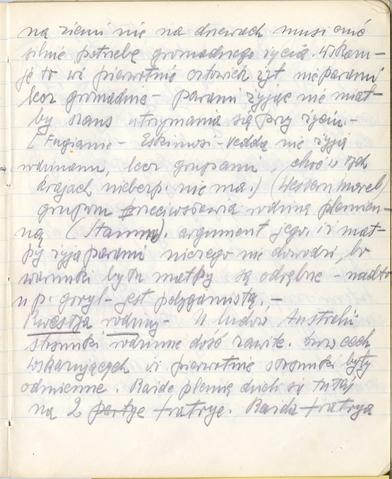 na ziemi nie na drzewach musi mieć
silnie potrzebę gromadnego życia. Wskazu-
je to iż pierwotnie człowiek żył nie parami
lecz gromadnie - parami żyjąc nie miał-
by szans utrzymania się przy życiu -
(Fuegianie - Eskimosi - Vedda nie żyją
rodzinami, lecz grupami, choć w tych
krajach niebezp. nie ma.) (Westermarck
grupom przeciwstawia rodzinę plemien-
ną (Stamm), argument jego, iż mał-
py żyją parami niczego nie dowodzi, bo
warunki bytu małp są odrębne - nadto
n p. goryl - jest poligamistą. -
Kwestja rodziny - U ludów Australii
stosunki rodzinne dość zawiłe.
wskazujących iż pierwotnie stosunki były
odmienne. Każde plemię dzieli się tutaj
na 2 partje fratrye. Każda fratrya